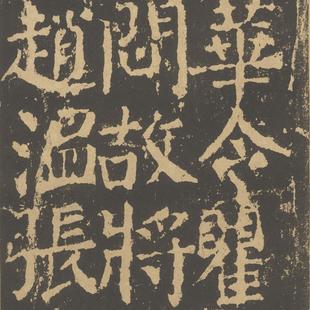 華令瞿
問故將
趙溫張